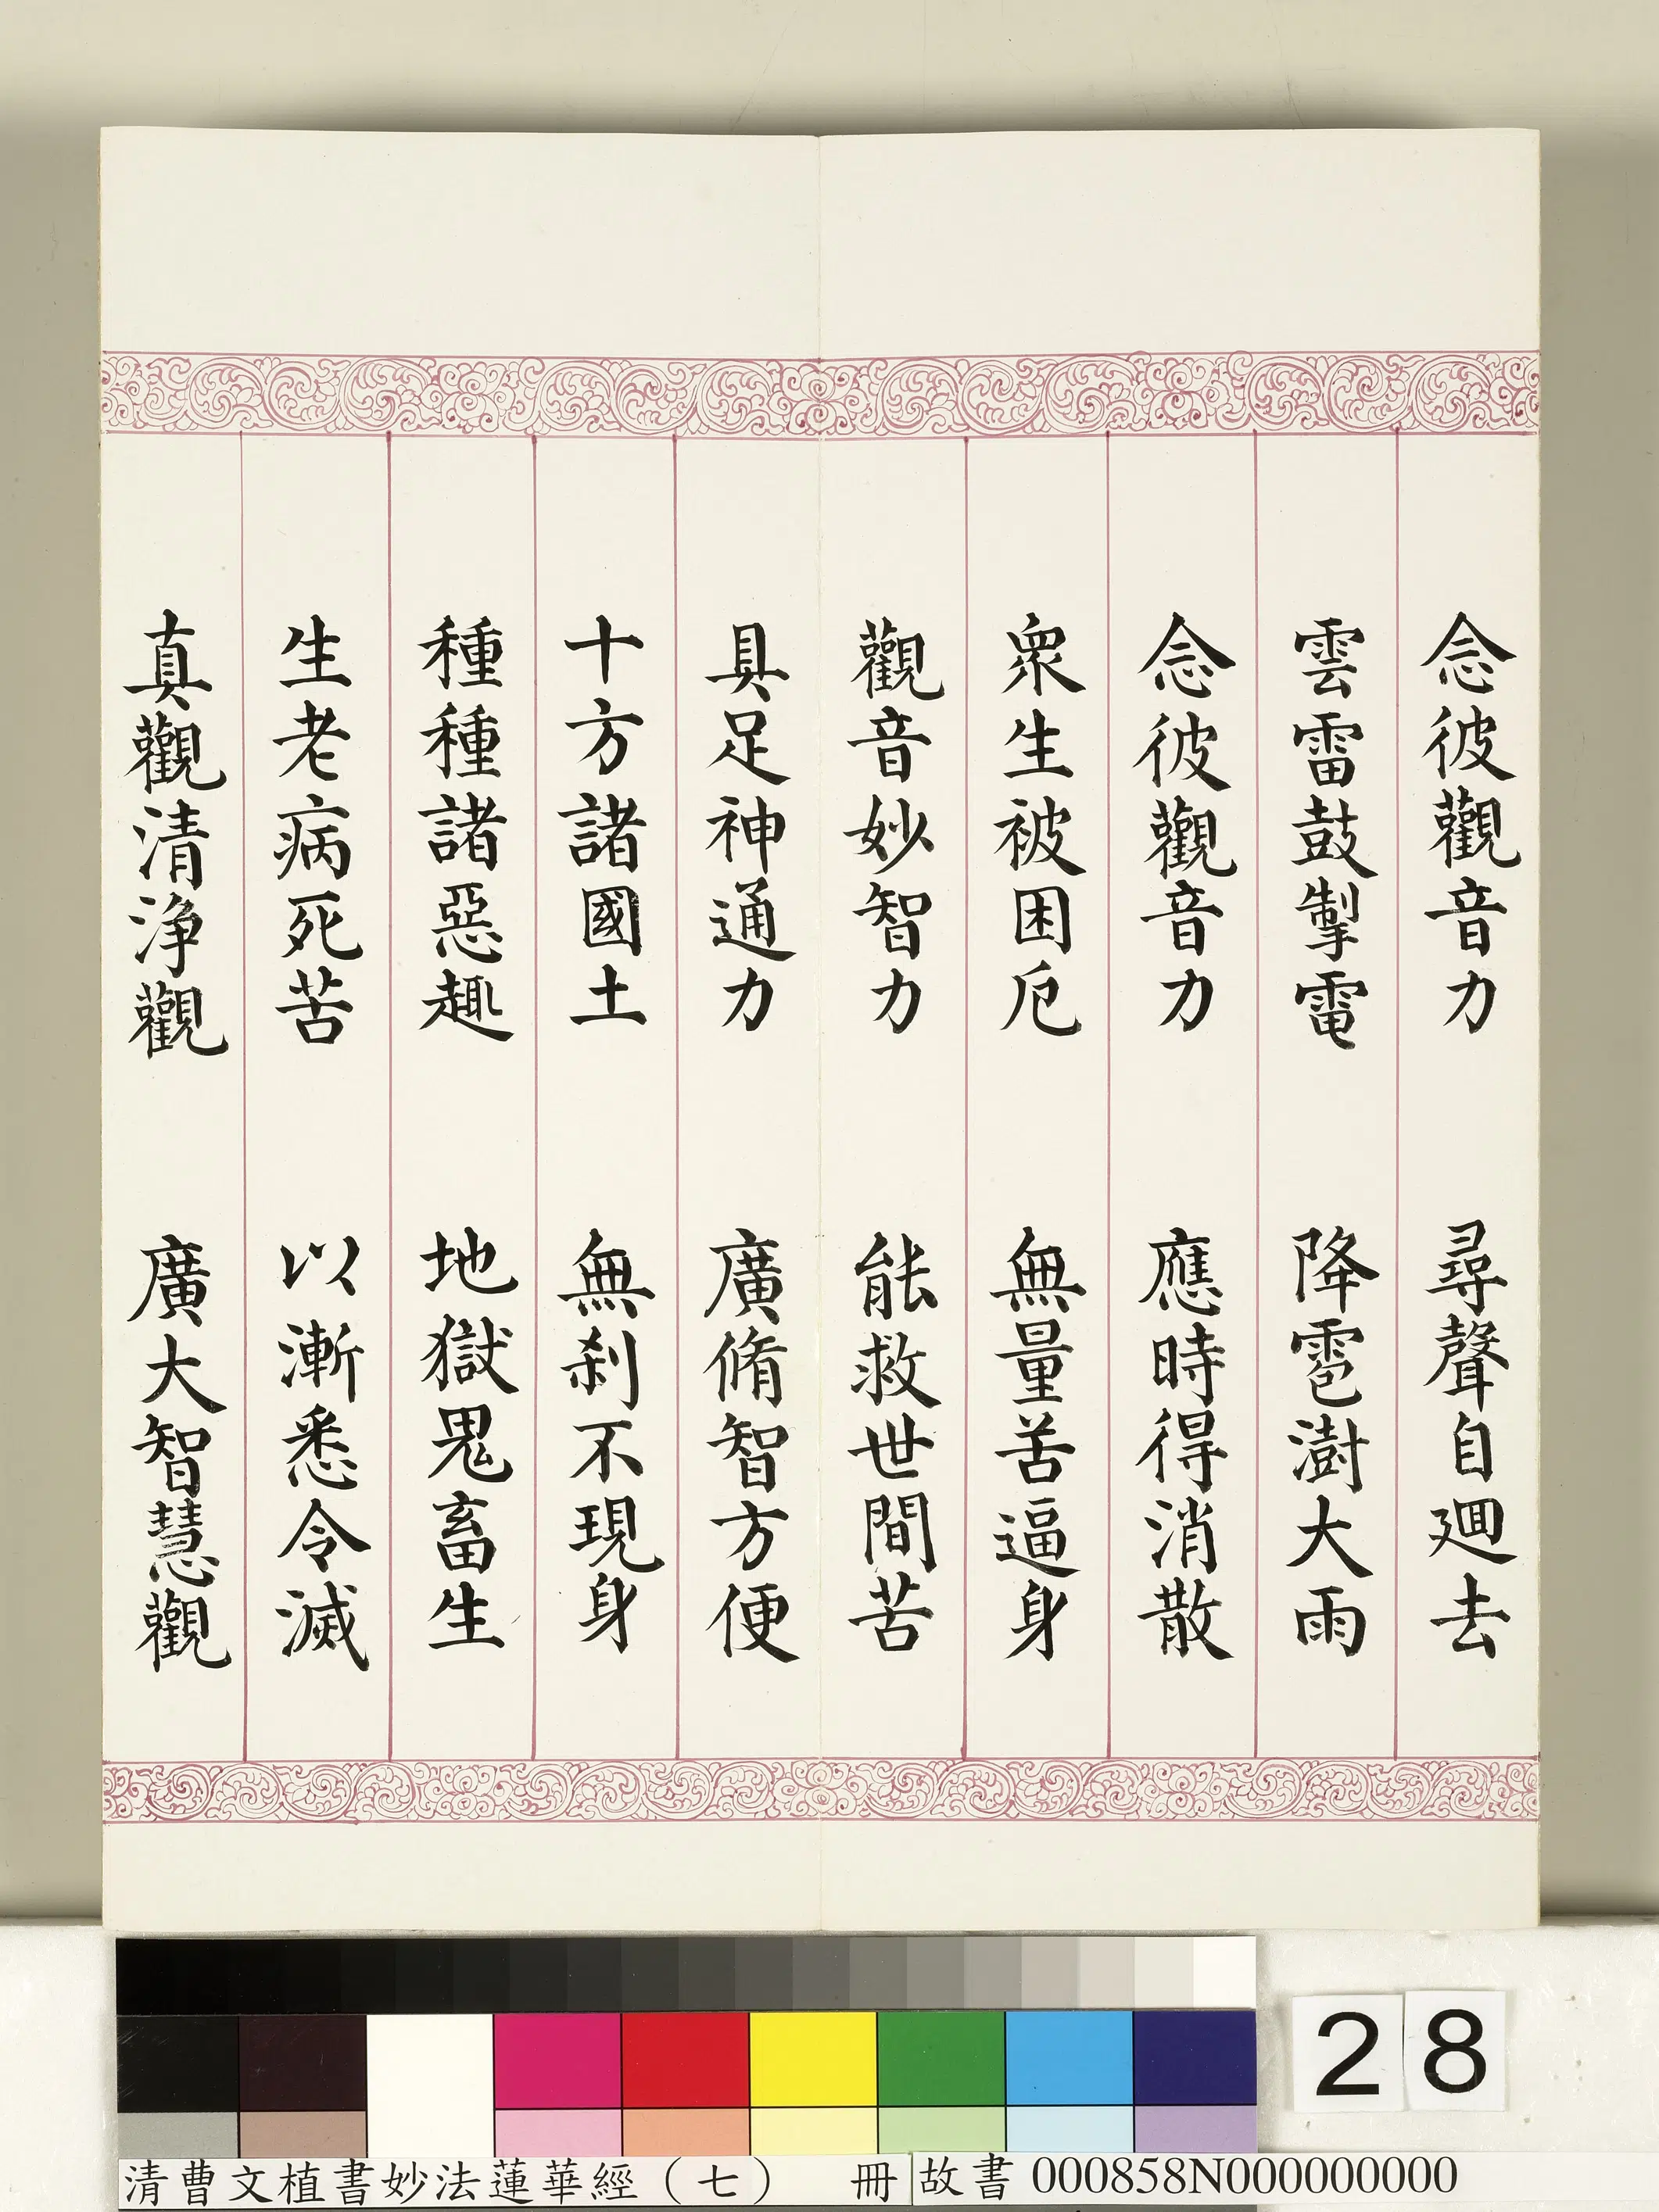 念彼觀音力　尋聲自迴去
雲雷鼓掣電　降雹澍大雨
念彼觀音力　應時得消散
衆生被困厄　無量苦逼身
觀音妙智力　能救世間苦
具足神通力　廣脩智方便
十方諸國土　無刹不現身
種種諸惡趣　地獄鬼畜生
生老病死苦　以漸悉令滅
真觀清淨觀　廣大智慧觀
28
清曹文植書妙法蓮華經（七）　冊　故書 000858N000000000